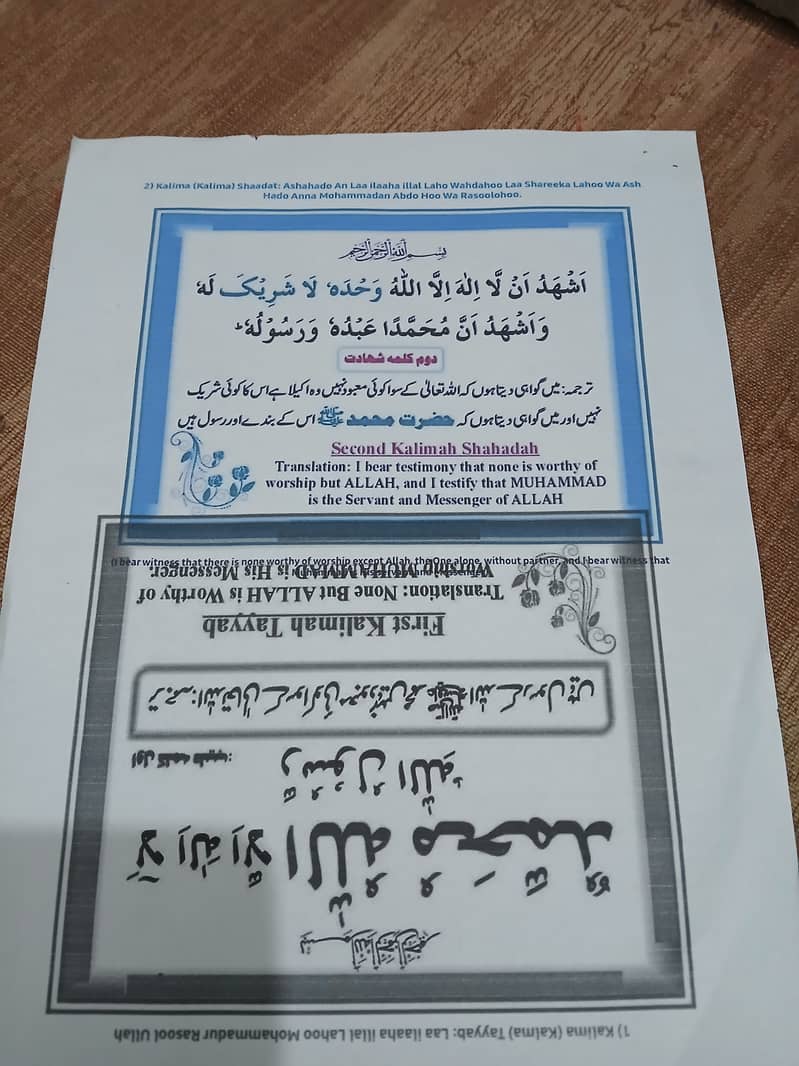 2) Kalima (Kalima) Shaadat: Ashahado An Laa ilaaha illal Laho Wahdahoo Laa Shareeka Lahoo Wa Ash
Hado Anna Mohammadan Abdo Hoo Wa Rasoolohoo.
بسم الله الرحمن الرحيم
اَشْهَدُ اَنْ لَّا اِلٰهَ اِلَّا اللّٰهُ وَحْدَهٗ لَا شَرِيْكَ لَهٗ
وَاَشْهَدُ اَنَّ مُحَمَّدًا عَبْدُهٗ وَرَسُوْلُهٗ ؕ
دوم کلمه شهادت
ترجمہ: میں گواہی دیتا ہوں کہ اللہ تعالیٰ کے سوا کوئی معبود نہیں وہ اکیلا ہے اس کا کوئی شریک
نہیں اور میں گواہی دیتا ہوں کہ حضرت محمد ﷺ اس کے بندے اور رسول ہیں
Second Kalimah Shahadah
Translation: I bear testimony that none is worthy of
worship but ALLAH, and I testify that MUHAMMAD
is the Servant and Messenger of ALLAH
(I bear witness that there is none worthy of worship except Allah, the One alone, without partner, and I bear witness that
1) Kalima (Kalma) Tayyab: Laa ilaaha illal Lahoo Mohammadur Rasool Ullah
بسم الله الرحمن الرحيم
لَآ اِلٰهَ اِلَّا اللّٰهُ مُحَمَّدٌ
رَّسُوْلُ اللّٰهِ
اول کلمه طیب:
ترجمہ: اللہ تعالیٰ کے سوا کوئی معبود نہیں محمد ﷺ اللہ کے رسول ہیں
First Kalimah Tayyab
Translation: None But ALLAH is Worthy of
Worship MUHAMMAD is His Messenger